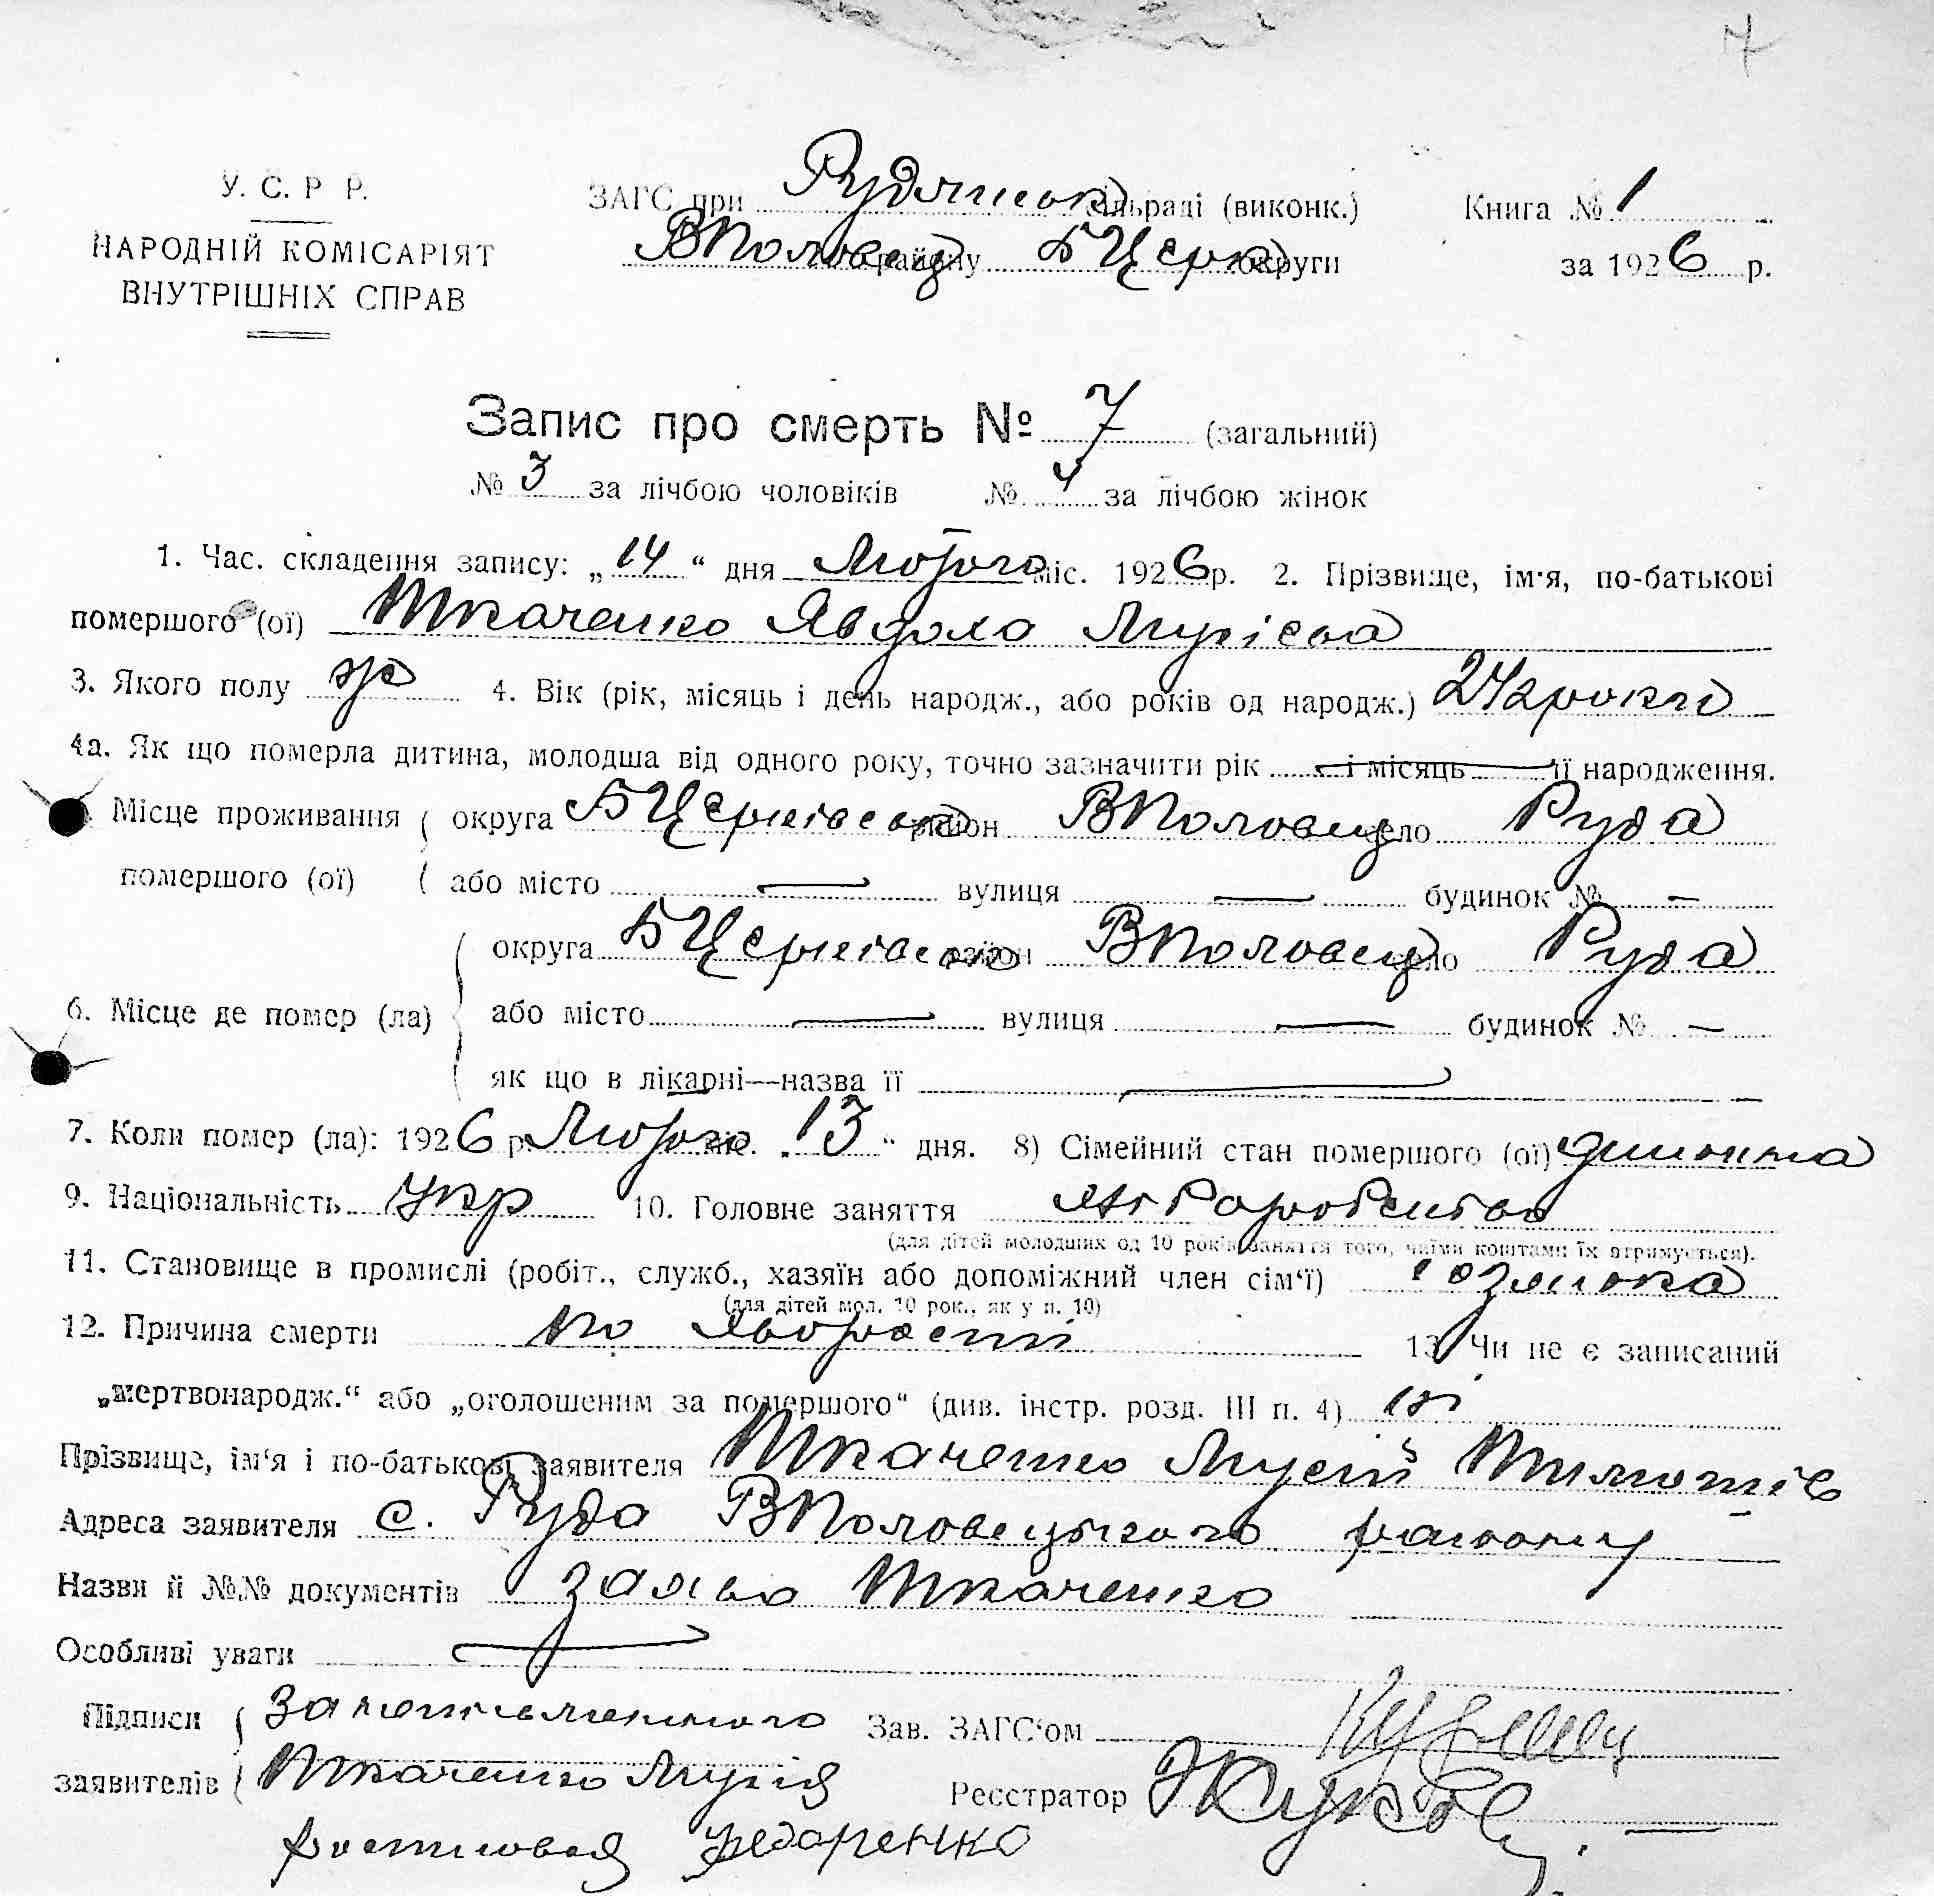 7
У. С. Р Р.
НАРОДНІЙ КОМІСАРІЯТ
ВНУТРІШНІХ СПРАВ
ЗАГС при Рудянськ сільраді (виконк.)
ВПоловец району БЦерк округи
Книга № 1
за 1926 р.
Запис про смерть № 7 (загальний)
№ 3 за лічбою чоловіків № 4 за лічбою жінок
1. Час. складення запису: „14“ дня Лютого міс. 1926 р. 2. Прізвище, ім'я, по-батькові
помершого (ої) Ткаченко Явдоха Мусієва
3. Якого полу ж 4. Вік (рік, місяць і день народж., або років од народж.) 24 роки
4а. Як що померла дитина, молодша від одного року, точно зазначити рік і місяць її народження.
Місце проживання округа БЦерківська район ВПоловец село Руда
помершого (ої) або місто — вулиця — будинок № —
округа БЦерківська район ВПоловец село Руда
6. Місце де помер (ла) або місто — вулиця — будинок № —
як що в лікарні—назва її —
7. Коли помер (ла): 1926 р. Лютого міс. „13“ дня. 8) Сімейний стан помершого (ої)
9. Національність Укр 10. Головне заняття
(для дітей молодших од 10 років заняття того, чиїми коштами їх отримується).
11. Становище в промислі (робіт., служб., хазяїн або допоміжний член сім'ї) хозяйка
(для дітей мол. 10 рок., як у п. 10)
12. Причина смерти по 13. Чи не є записаний
„мертвонародж.“ або „оголошеним за помершого“ (див. інстр. розд. III п. 4) ні
Прізвище, ім'я і по-батькові заявителя Ткаченко Мусій Тимошів
Адреса заявителя с. Руда ВПоловецького району
Назви й №№ документів заява Ткаченко
Особливі уваги —
Підписи За неписьменного Зав. ЗАГС'ом
заявителів Ткаченко Мусія Реєстратор
росписався Федоренко